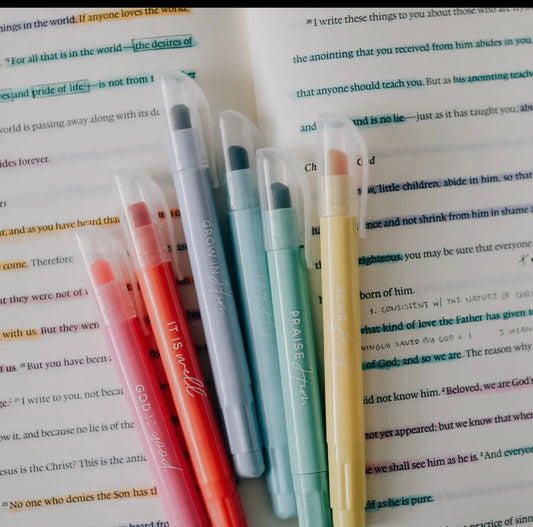 ings in the world. If anyone loves the world,
15 For all that is in the world—the desires of
es and pride of life—is not from t
world is passing away along with its de
ides forever.
ts
r, and as you have heard tha
come. Therefore
t they were not of
with us. But they wen
f us. 20 But you have been
ge. 21 I write to you, not becau
ow it, and because no lie is of the
esus is the Christ? This is the antic
23 No one who denies the Son has th
heard from
26 I write these things to you about those who are try
the anointing that you received from him abides in you,
that anyone should teach you. But as his anointing teache
and is no lie—just as it has taught you, abi
Ch God
w, little children, abide in him, so that
ence and not shrink from him in shame a
righteous, you may be sure that everyone
born of him.
1. CONSISTENT W/ THE NATURE OF CHR
what kind of love the Father has given to
INGLY SAVED BY GOD v. 1 3. MEAN
of God; and so we are. The reason why
did not know him. 2 Beloved, we are God's
not yet appeared; but we know that when
we shall see him as he is. 3 And everyon
lf as he is pure.
practice of sinn
GOD is good
IT IS well
GROW IN Him
I AM His
PRAISE Him